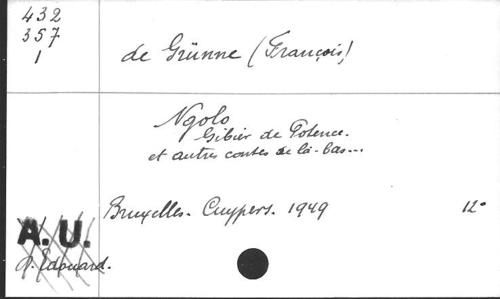 432
357
1
de Grünne (François)
Ngolo
Gibier de Potence.
et autres contes de là-bas...
Bruxelles. Cuypers. 1949
12°
A.U.
Edouard.